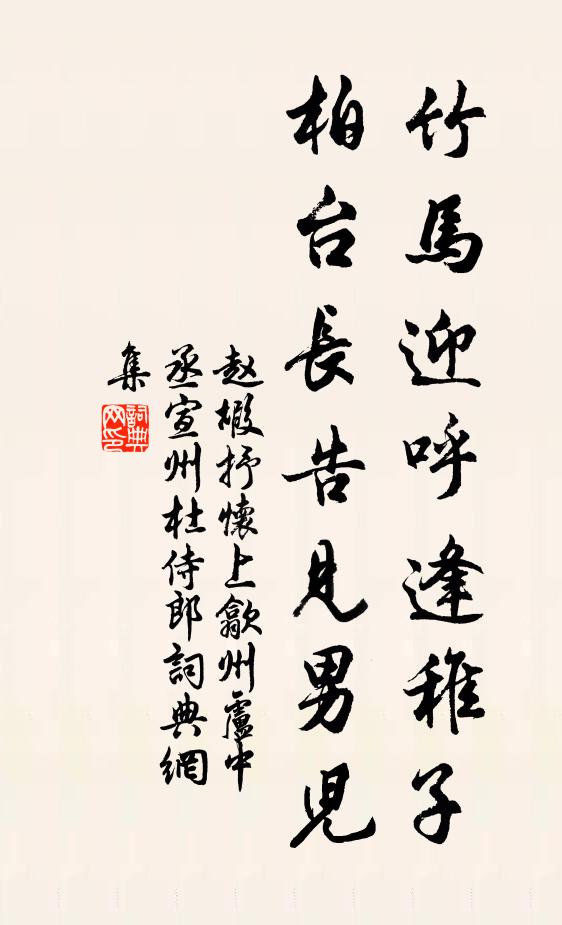 竹馬迎呼逢稚子
柏台長告見男児
赵嘏抒懷上歙州盧中
丞宣州杜侍郎詞典網
集
詞典
网印